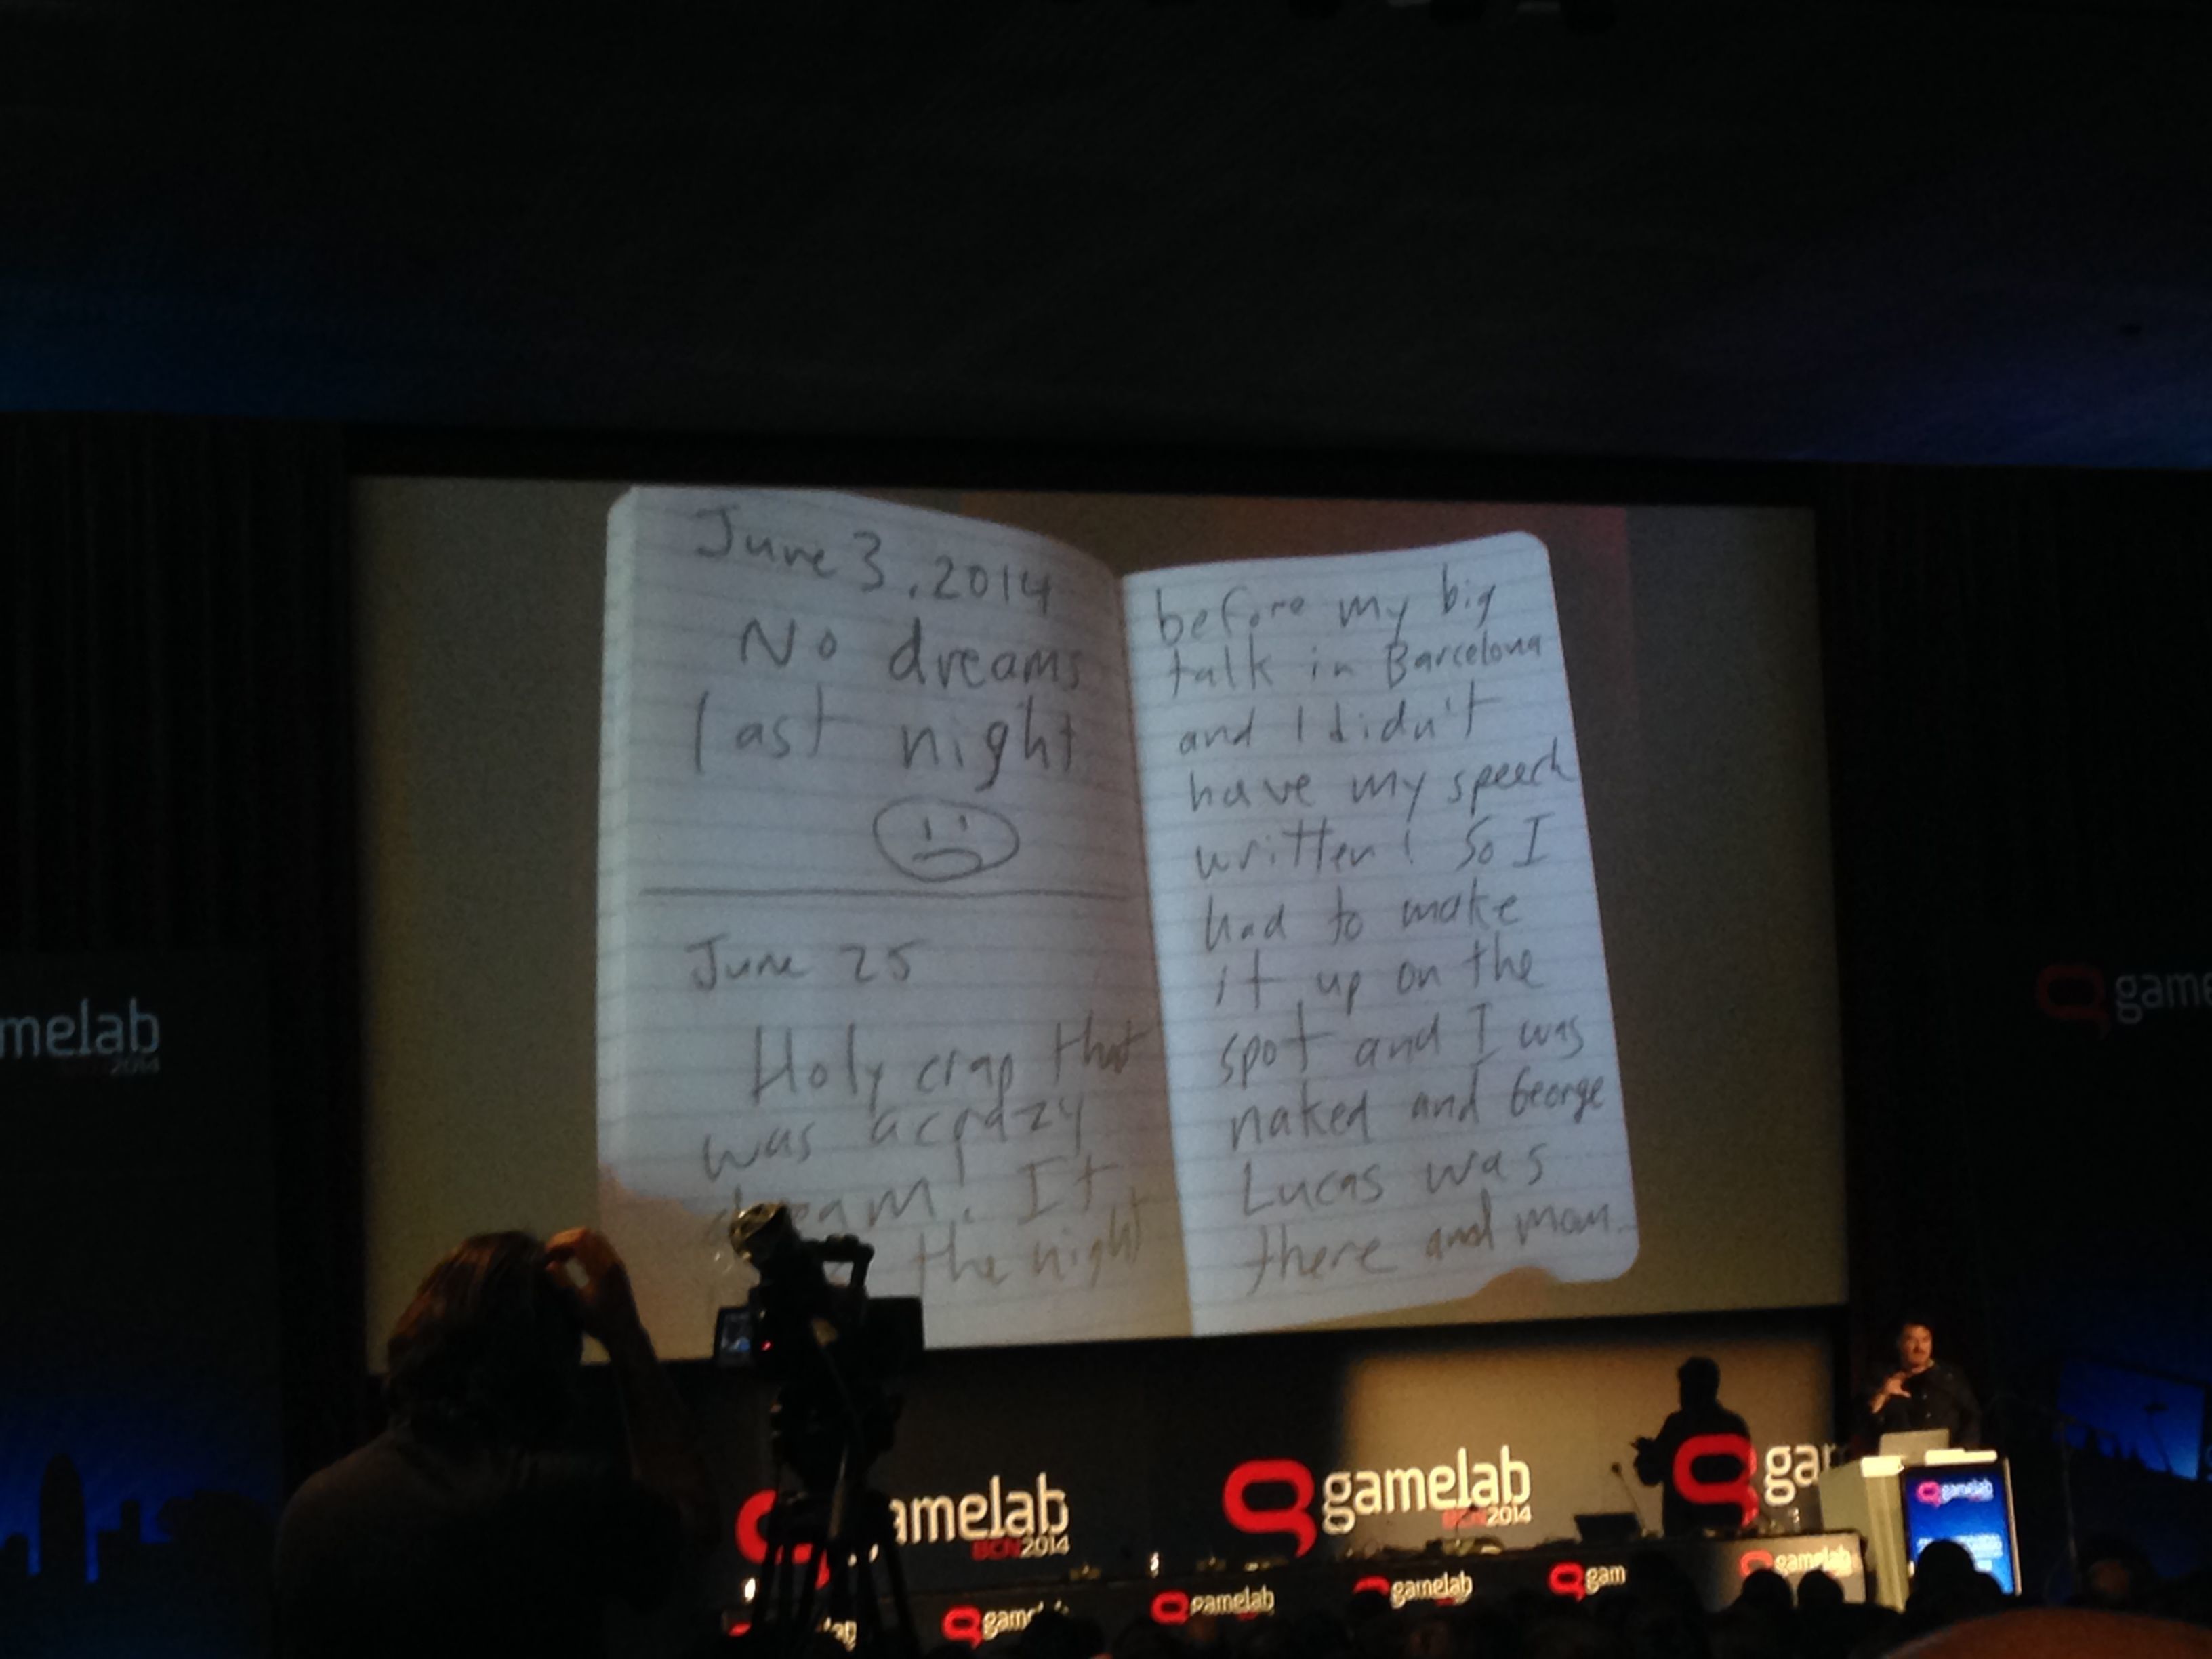 June 3, 2014
No dreams
last night
June 25
Holy crap that
was a crazy
dream! It
the night
before my big
talk in Barcelona
and I didn't
have my speech
written! So I
had to make
it up on the
spot and I was
naked and George
Lucas was
there and mom
melab
2014
game
amelab
BCN2014
gamelab
BCN2014
gam
gamelab
gamelab
gamelab
gam
gamelab